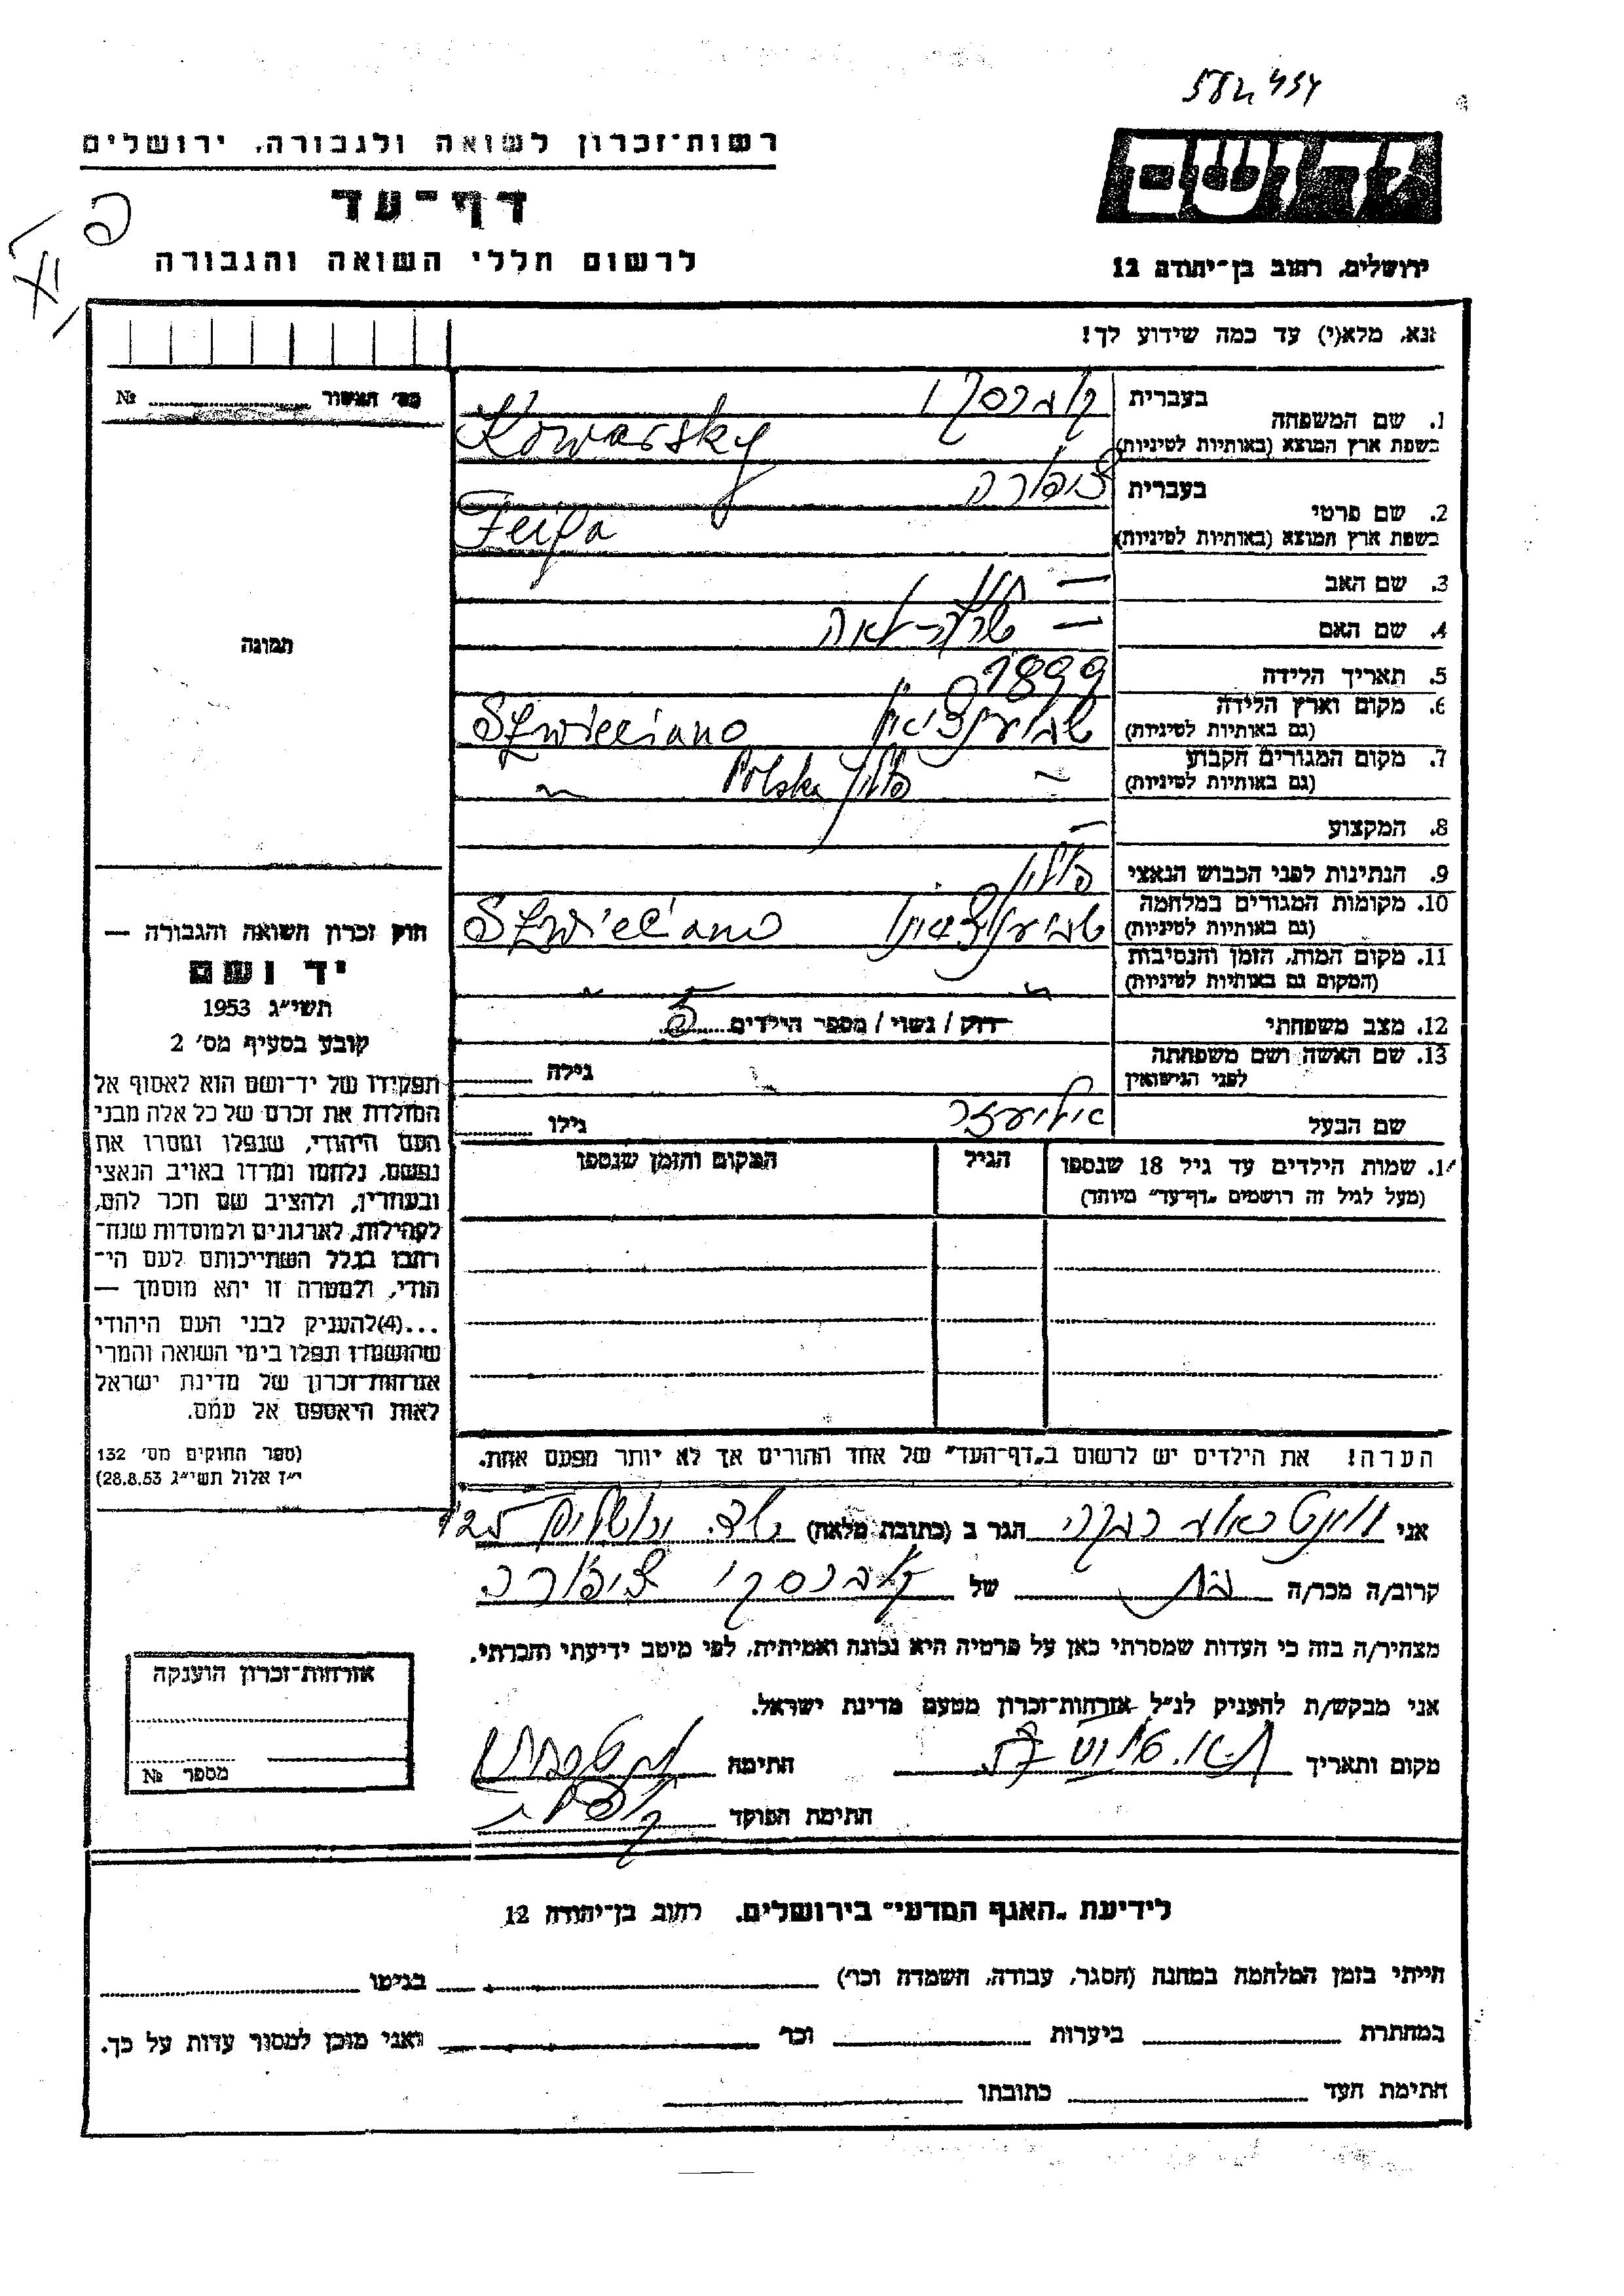 582434
רשות־זכרון לשואה ולגבורה, ירושלים
יד ושם
דף־עד
לרשום חללי השואה והגבורה
ירושלים, רחוב בן־יהודה 12
נא, מלא(י) עד כמה שידוע לך!
מס׳ האשור № 
1. שם המשפחה
בעברית קוברסקי
בשפת ארץ המוצא (באותיות לטיניות) Kowarsky
2. שם פרטי
בעברית ציפורה
בשפת ארץ המוצא (באותיות לטיניות) Feifa
3. שם האב —
4. שם האם — לאה
5. תאריך הלידה 1899
6. מקום וארץ הלידה
(גם באותיות לטיניות) Szwieciano
7. מקום המגורים הקבוע
(גם באותיות לטיניות) פולין Polska
8. המקצוע —
9. הנתינות לפני הכבוש הנאצי פולין
10. מקומות המגורים במלחמה
(גם באותיות לטיניות) Szwieciano
11. מקום המות, הזמן והנסיבות
(המקום גם באותיות לטיניות)
12. מצב משפחתי רווק / נשוי / מספר הילדים 5
13. שם האשה ושם משפחתה
לפני הנישואין
גילה
שם הבעל אליעזר
גילו
14. שמות הילדים עד גיל 18 שנספו
(מעל לגיל זה רושמים „דף־עד״ מיוחד)
הגיל
המקום והזמן שנספו
הערה! את הילדים יש לרשום ב„דף־העד״ של אחד ההורים אך לא יותר מפעם אחת.
תמונה
חוק זכרון השואה והגבורה —
יד ושם
תשי״ג 1953
קובע בסעיף מס׳ 2
תפקידו של יד־ושם הוא לאסוף אל
המולדת את זכרם של כל אלה מבני
העם היהודי, שנפלו ומסרו את
נפשם, נלחמו ומרדו באויב הנאצי
ובעוזריו, ולהציב שם וזכר להם,
לקהילות, לארגונים ולמוסדות שנח־
רבו בגלל השתייכותם לעם הי־
הודי, ולמטרה זו יהא מוסמך —
...(4) להעניק לבני העם היהודי
שהושמדו ונפלו בימי השואה והמרי
אזרחות־זכרון של מדינת ישראל
לאות היאספם אל עמם.
(ספר החוקים מס׳ 132
י״ז אלול תשי״ג 28.8.53)
אני רבקה הגר ב (כתובת מלאה) שד. ירושלים
קרוב/ה מכר/ה בת של קוברסקי ציפורה
מצהיר/ה בזה כי העדות שמסרתי כאן על פרטיה היא נכונה ואמיתית, לפי מיטב ידיעתי והכרתי.
אני מבקש/ת להעניק לנ״ל אזרחות־זכרון מטעם מדינת ישראל.
מקום ותאריך
חתימה
חתימת הפוקד
אזרחות־זכרון הוענקה
מספר №
לידיעת „האגף המדעי״ בירושלים, רחוב בן־יהודה 12
הייתי בזמן המלחמה במחנה (הסגר, עבודה, השמדה וכו׳) בגיטו
במחתרת ביערות וכו׳ ואני מוכן למסור עדות על כך.
חתימת העד כתובתו